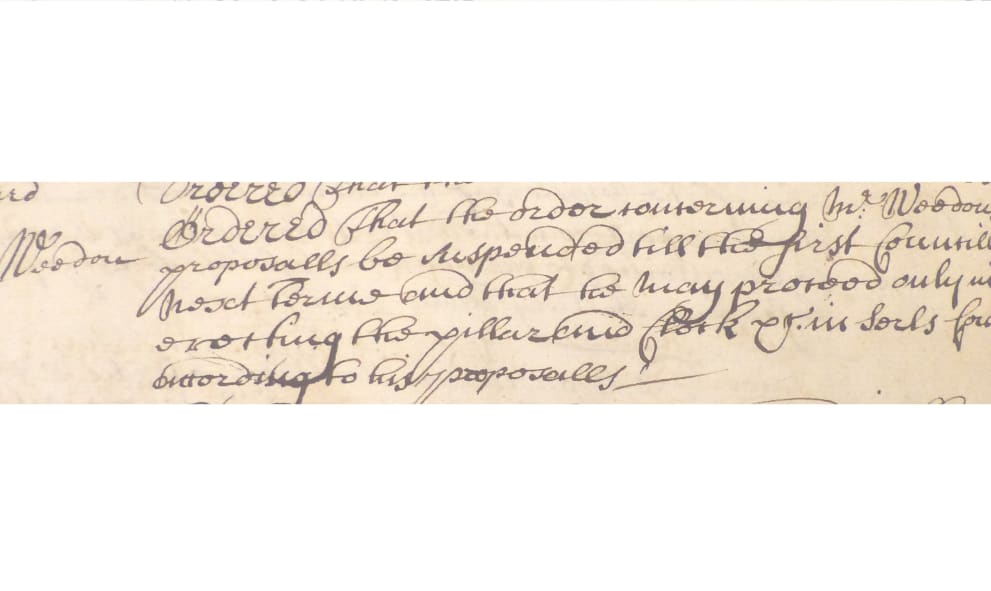 Ordered That the
Ordered That the order concerning Mr. Weedon
Weedon
proposalls be suspended till the first Councill
next Terme and that he may proceed only in
erecting the pillar and Clock &c. in Serls
according to his proposalls